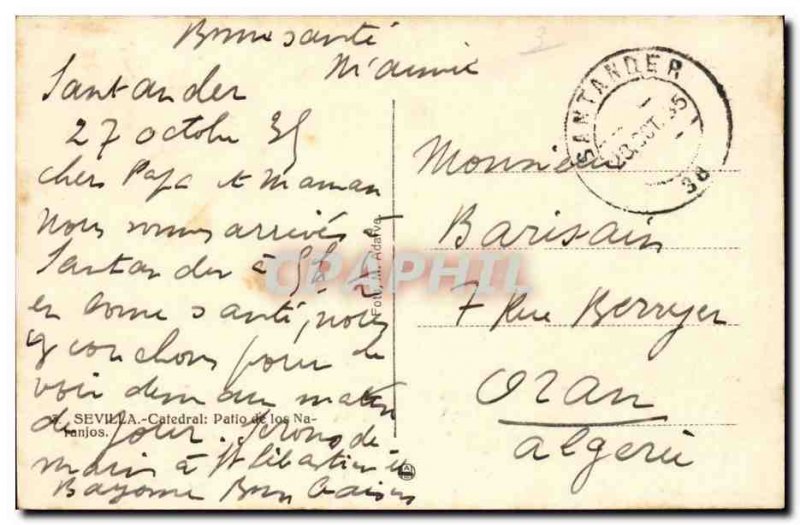 Bonne santé
M'amie
Santander
27 octobre 35
chers Papa et Maman
nous sommes arrivés à
Santander à 5h
en bonne santé, nous
y couchons pour le
voir demain matin
de jour. Serons de
main à St Sébastien et
Bayonne Bons Baisers
3. SEVILLA.-Catedral: Patio de los Na-
ranjos.
Foto, M. Adarve
CPAPHIL
SANTANDER
OCT. 35
38
Monsieur
Barisain
7 Rue Berryer
Oran
Algérie